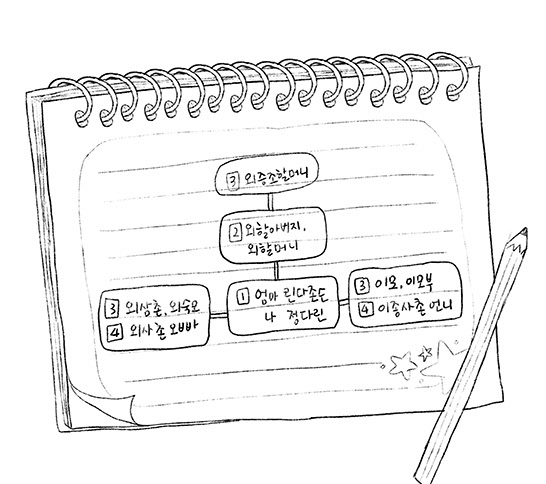 3 외증조할머니
2 외할아버지,
외할머니
3 외삼촌, 외숙모
4 외사촌 오빠
1 엄마 린다존드
나 정다린
3 이모, 이모부
4 이종사촌 언니